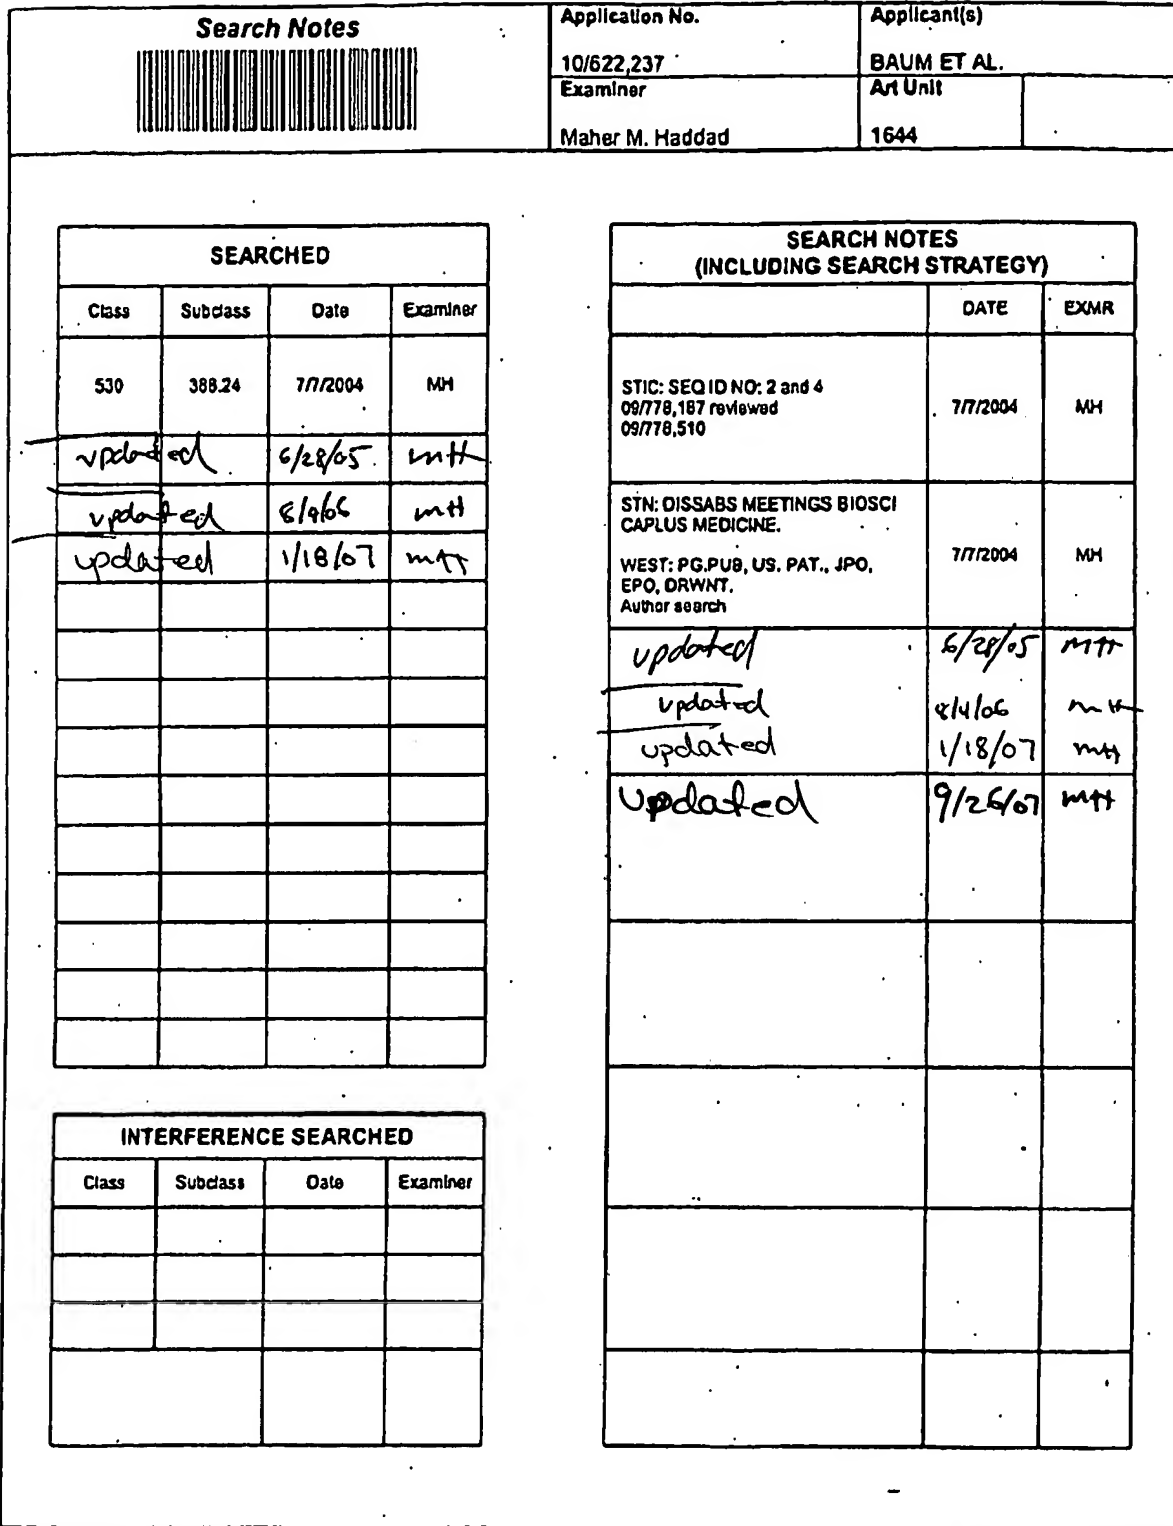 Search Notes
Application No.
10/622,237
Applicant(s)
BAUM ET AL.
Examiner
Maher M. Haddad
Art Unit
1644
SEARCHED
Class Subclass Date Examiner
530 388.24 7/7/2004 MH
updated 6/28/05 MH
updated 8/4/06 MH
updated 1/18/07 MH
INTERFERENCE SEARCHED
Class Subclass Date Examiner
SEARCH NOTES
(INCLUDING SEARCH STRATEGY)
DATE EXMR
STIC: SEQ ID NO: 2 and 4
09/778,187 reviewed
09/778,510
7/7/2004 MH
STN: DISSABS MEETINGS BIOSCI
CAPLUS MEDICINE.
WEST: PG.PUB, US. PAT., JPO,
EPO, DRWNT.
Author search
7/7/2004 MH
updated 6/28/05 MH
updated 8/4/06 MH
updated 1/18/07 MH
Updated 9/26/07 MH